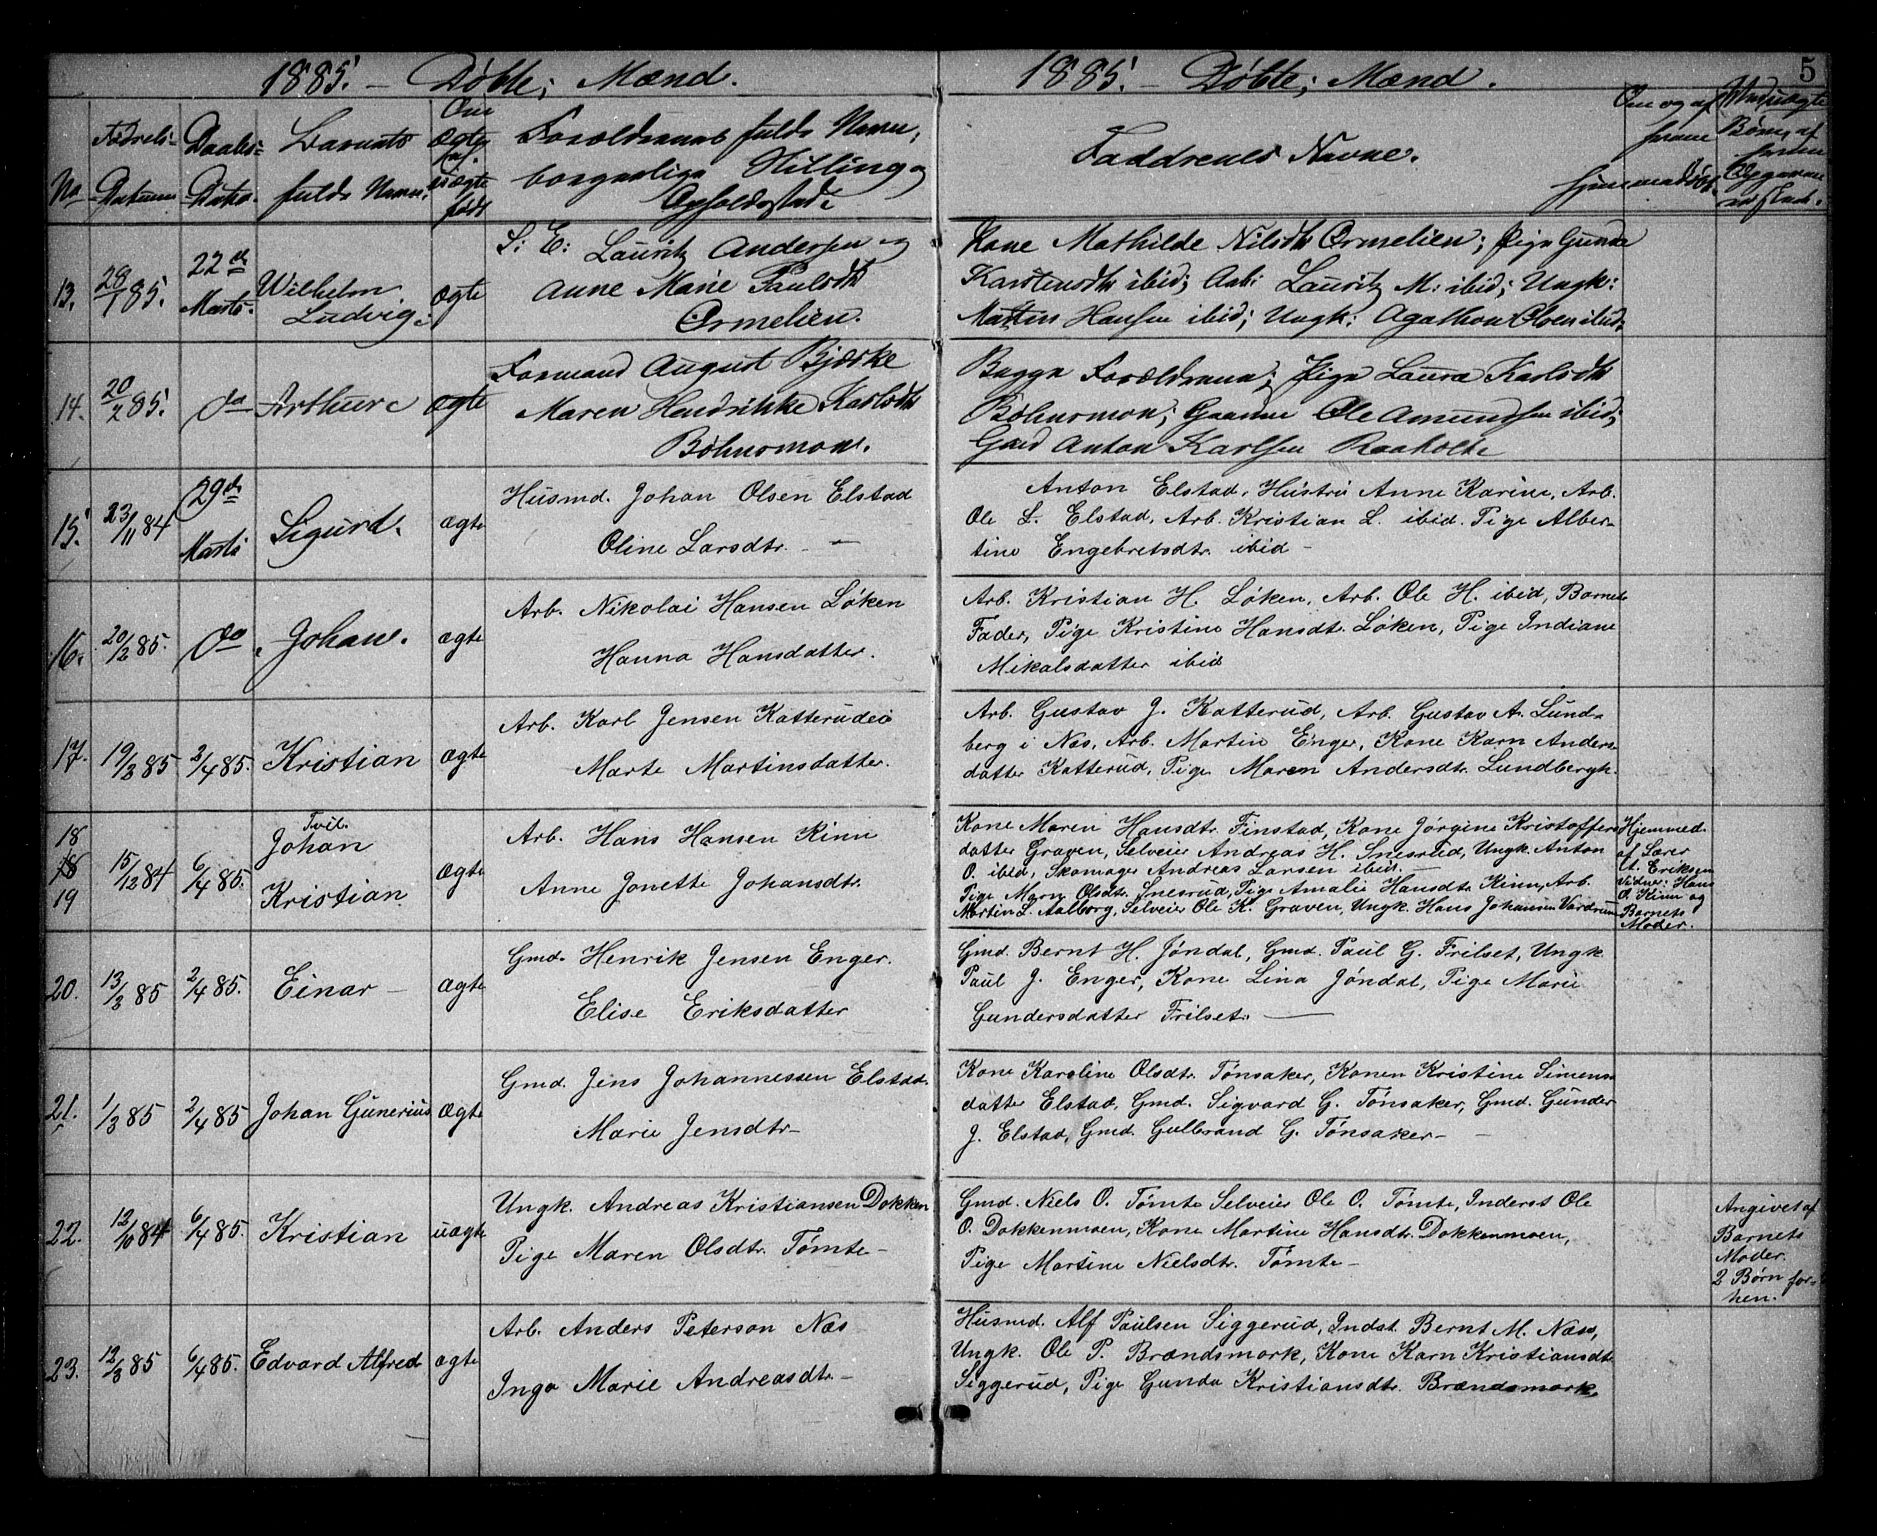 1885. – Døbte; Mænd.
1885. – Døbte; Mænd.
5
No
Fødsels-
Datum
Daabs-
Dato.
Barnets
fulde Navn.
Om
ægte
ell.
uægte
født
Forældrenes fulde Navn,
borgerlige Stilling og
Opholdssted.
Faddrenes Navne.
Om og af
hvem
hjemmedøbt.
Børn, af
hvem
Opgaven
13.
28/1 85.
22de
Marts.
Wilhelm
Ludvig.
ægte
S: E: Lauritz Andersen og
Anne Marie Paulsdtr
Ormelien.
Kone Mathilde Nilsdtr Ormelien; Pige Gunda
Karstensdtr ibid; Arb: Lauritz M: ibid; Ungk:
Martin Hansen ibid; Ungk: Agathon Olsen ibid.
14.
20/2 85.
do
Arthur.
ægte
Formand August Bjerke
Maren Hendrikke Karlsdtr
Bøhnsmoen.
Begge Forældrene; Pige Laura Karlsdtr
Bøhnsmoen; Gaardm Ole Amundsen ibid;
Gmd Anton Karlsen Raaholt.
15.
23/11 84
29de
Marts
Sigurd.
ægte
Husmd. Johan Olsen Elstad
Oline Larsdtr. —
Anton Elstad, Hustru Anne Karine, Arb.
Ole L. Elstad, Arb. Kristian L. ibid. Pige Alber-
tine Engebretsdtr. ibid –
16.
20/2 85.
do
Johan.
ægte
Arb. Nikolai Hansen Løken
Hanna Hansdatter.
Arb. Kristian H. Løken, Arb. Ole H. ibid, Barnets
Fader, Pige Kristine Hansdtr. Løken, Pige Indiane
Mikalsdatter ibid
17.
19/3 85
2/4 85.
Kristian
ægte
Arb. Karl Jensen Katterudei
Marte Martinsdatter.
Arb. Gustav J. Katterud, Arb. Gustav A. Lund-
berg i Nes, Arb. Martin Enger, Kone Karn Anders-
datter Katterud, Pige Maren Andersdtr. Lundbergh.
18
18
19
15/12 84
6/4 85.
Tvil.
Johan
Kristian
ægte
Arb. Hans Hansen Kinn
Anne Jonette Johansdtr.
Kone Maren Hansdtr. Finstad, Kone Jørgine Kristoffers-
datter Graven, Selveier Andreas H. Snesrud, Ungk. Anton
O. ibid, Skomager Andreas Larsen ibid. –
Pige Maren Olsdtr. Snesrud, Pige Amalie Hansdtr. Kinn, Arb.
Martin L. Aalborg, Selveier Ole K. Graven, Ungk. Hans Johansen Vardrum
Hjemmed.
af Lærer
A. Eriksen
Vidner: Hans
O. Kinn og
Barnets
Moder.
20.
13/3 85
2/4 85.
Einar –
ægte
Gmd. Henrik Jensen Enger.
Elise Eriksdatter
Gmd. Bernt H. Jøndal, Gmd. Paul G. Frilset, Ungk
Paul J. Enger, Kone Lina Jøndal, Pige Marie
Gundersdatter Frilset. —
21.
1/3 85
2/4 85
Johan Gunerius
ægte
Gmd. Jens Johannessen Elstad.
Marie Jensdtr–
Kone Karoline Olsdtr. Tønsaker, Konen Kristine Simens-
datter Elstad, Gmd. Sigvard G. Tønsaker, Gmd. Gunder
J. Elstad, Gmd. Gulbrand G. Tønsaker – –
22.
12/10 84
6/4 85.
Kristian
uægte
Ungk. Andreas Kristiansen Dokken
Pige Maren Olsdtr. Tømte –
Gmd. Niels O. Tømte Selveier Ole O. Tømte, Inderst Ole
O. Dokkenmoen, Kone Martine Hansdtr. Dokkenmoen,
Pige Martine Nielsdtr. Tømte –
Angivet af
Barnets
Moder.
2 Børn for-
hen.
23.
12/3 85
6/4 85.
Edvard Alfred
ægte
Arb. Anders Peterson Næs
Inga Marie Andreasdtr. –
Husmd. Alf Paulsen Siggerud, Indst. Bernt M. Næss,
Ungk. Ole P. Brændsmork, Kone Karn Kristiansdtr
Siggerud, Pige Gunda Kristiansdtr. Brændsmork.